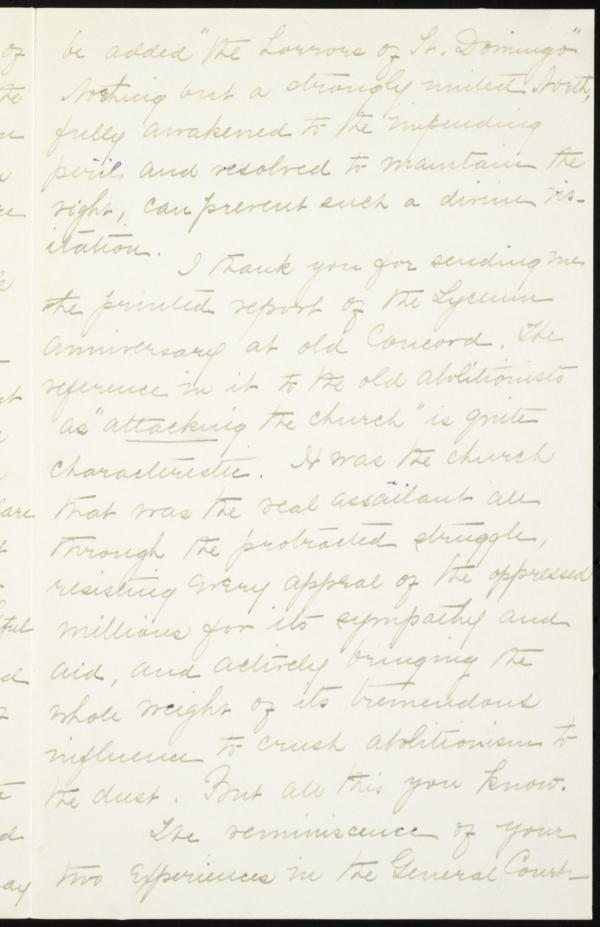 be added "the horrors of St. Domingo"
Nothing but a strongly united North,
fully awakened to the impending
peril and resolved to maintain the
right, can prevent such a divine vis-
itation.
I thank you for sending me
the printed report of the Lyceum
anniversary at old Concord. The
reference in it to the old abolitionists
as "attacking the church" is quite
characteristic. It was the church
that was the real assailant all
through the protracted struggle,
resisting every appeal of the oppressed
millions for its sympathy and
aid, and actively bringing the
whole weight of its tremendous
influence to crush abolitionism to
the dust. But all this you know.
The reminiscence of your
two experiences in the General Court